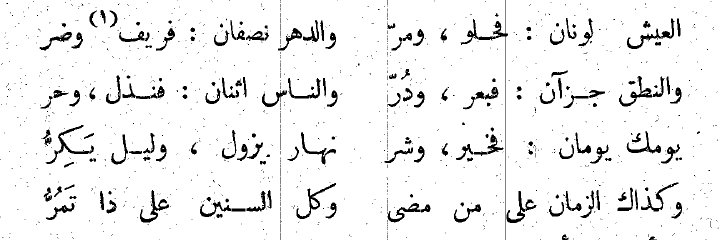 العيش لونان : فحلو ، ومرّ والدهر نصفان : فريف(١) وضر
والنطق جزآن : فبعر ، ودُرّ والناس اثنان : فنذل ، وحر
يومك يومان : فخير ، وشر نهار يزول ، وليل يَكِرُّ
وكذاك الزمان على من مضى وكل السنين على ذا تَمُرُّ